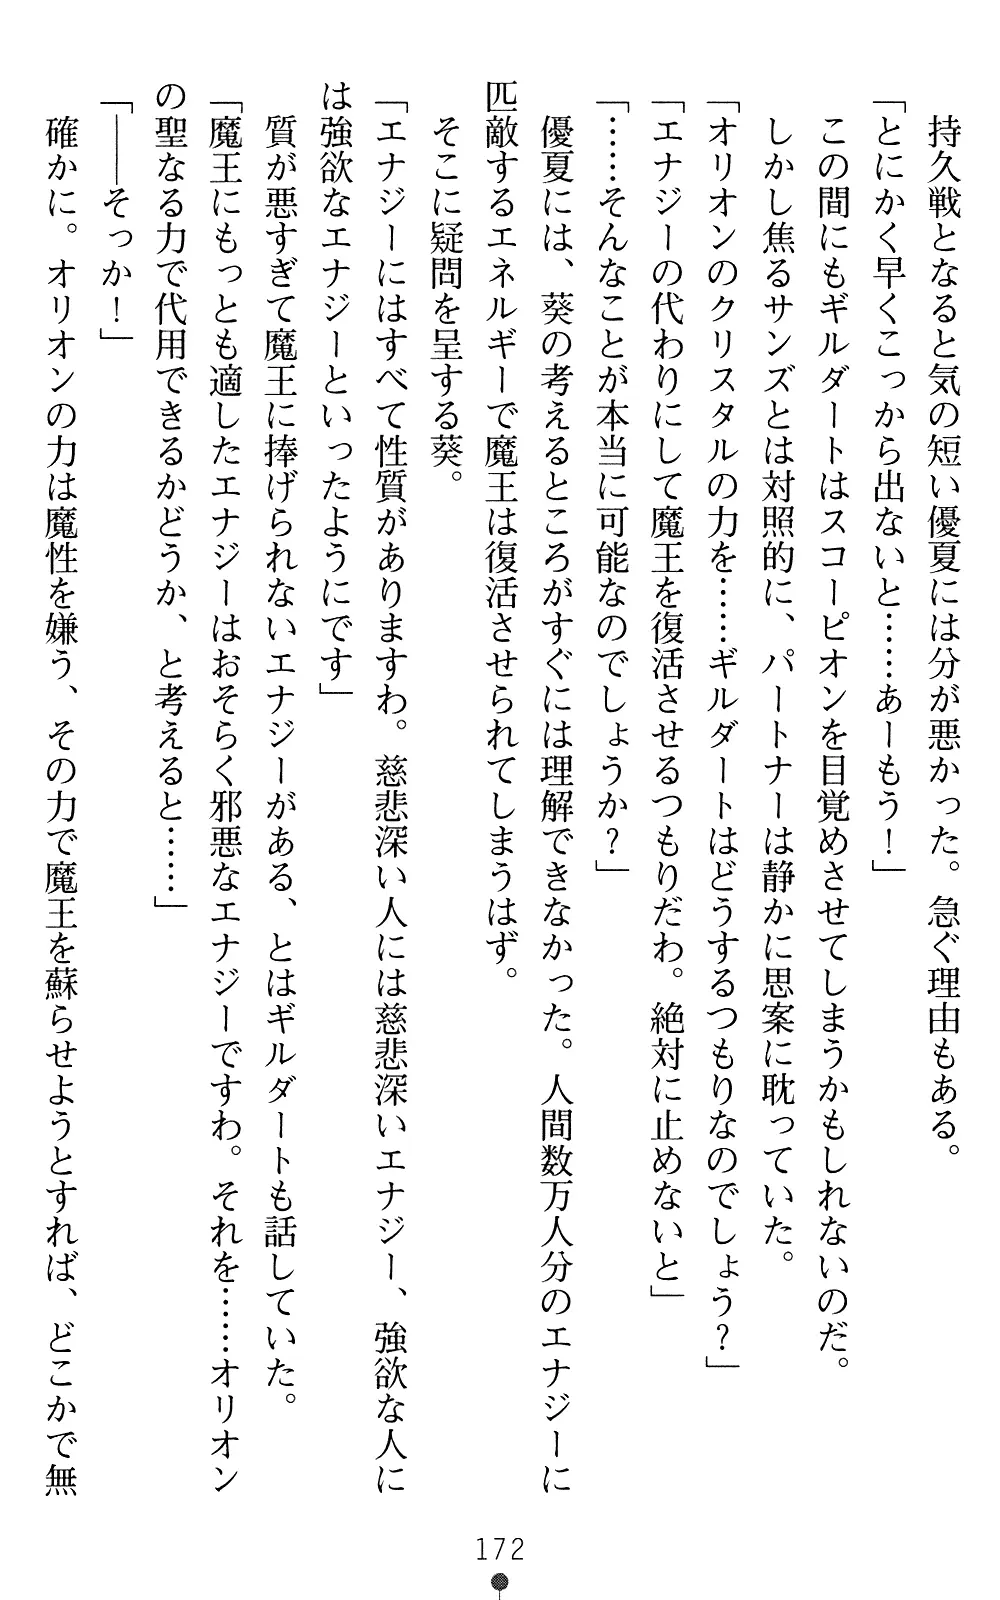 持久戦となると気の短い優夏には分が悪かった。急ぐ理由もある。
「とにかく早くこっから出ないと……あーもう！」
この間にもギルダートはスコーピオンを目覚めさせてしまうかもしれないのだ。
しかし焦るサンズとは対照的に、パートナーは静かに思案に耽っていた。
「オリオンのクリスタルの力を……ギルダートはどうするつもりなのでしょう？」
「エナジーの代わりにして魔王を復活させるつもりだわ。絶対に止めないと」
「……そんなことが本当に可能なのでしょうか？」
優夏には、葵の考えるところがすぐには理解できなかった。人間数万人分のエナジーに
匹敵するエネルギーで魔王は復活させられてしまうはず。
そこに疑問を呈する葵。
「エナジーにはすべて性質がありますわ。慈悲深い人には慈悲深いエナジー、強欲な人に
は強欲なエナジーといったようにです」
質が悪すぎて魔王に捧げられないエナジーがある、とはギルダートも話していた。
「魔王にもっとも適したエナジーはおそらく邪悪なエナジーですわ。それを……オリオン
の聖なる力で代用できるかどうか、と考えると……」
「――そっか！」
確かに。オリオンの力は魔性を嫌う、その力で魔王を蘇らせようとすれば、どこかで無
172